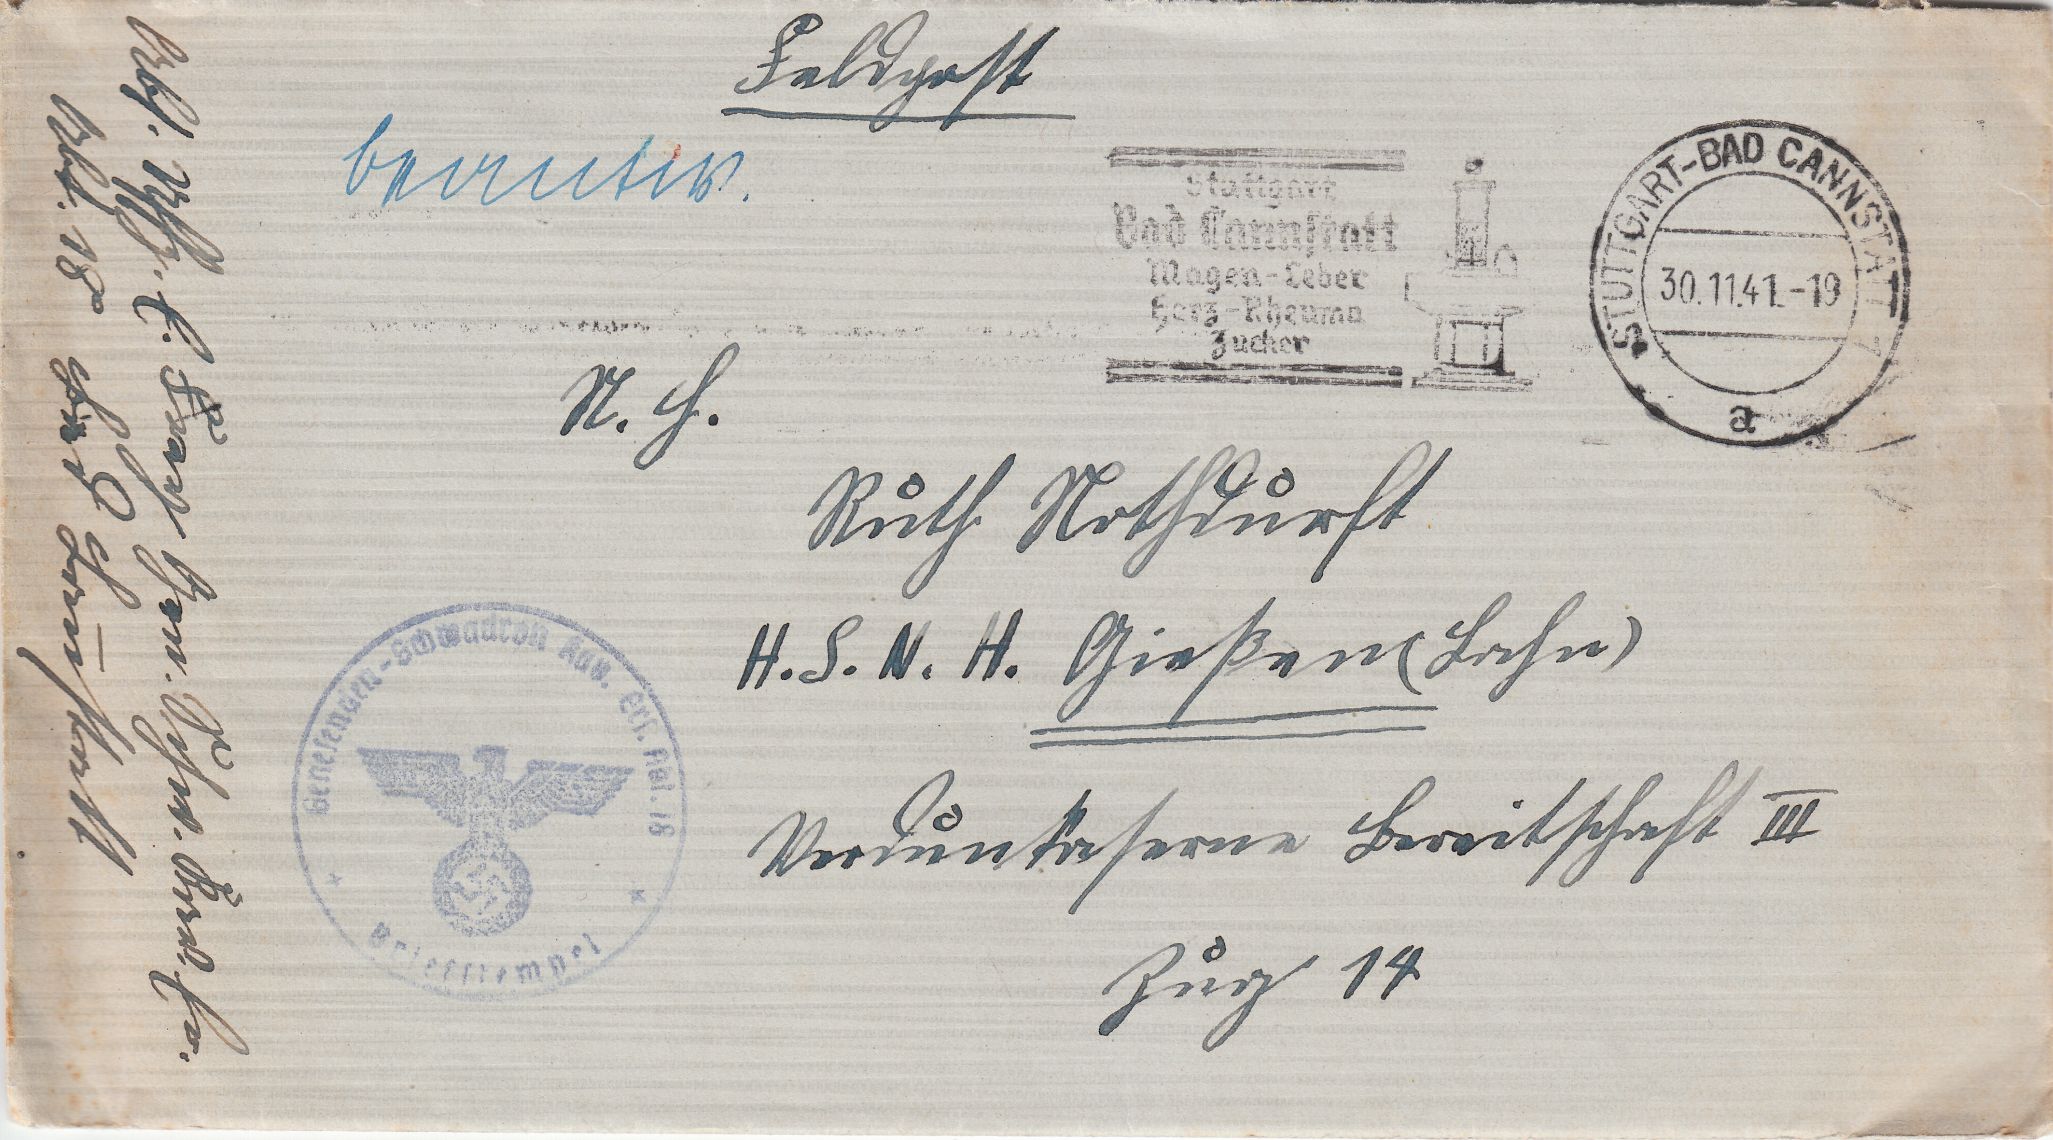 Feldpost
beantw.
Stuttgart
Bad Cannstatt
Magen-Leber
Herz-Rheuma
Zucker
STUTTGART-BAD CANNSTATT 7
30.11.41.-19
a
N. H.
Ruth Nothdurft
H.S.N.H. Gießen (Lahn)
Verdunkaserne Bereitschaft III
Zug 14
Genesenden-Schwadron Kav. Ers. Abt. 18
Briefstempel
Abs. Uffz. E.
Abt. 18 Bad Cannstatt